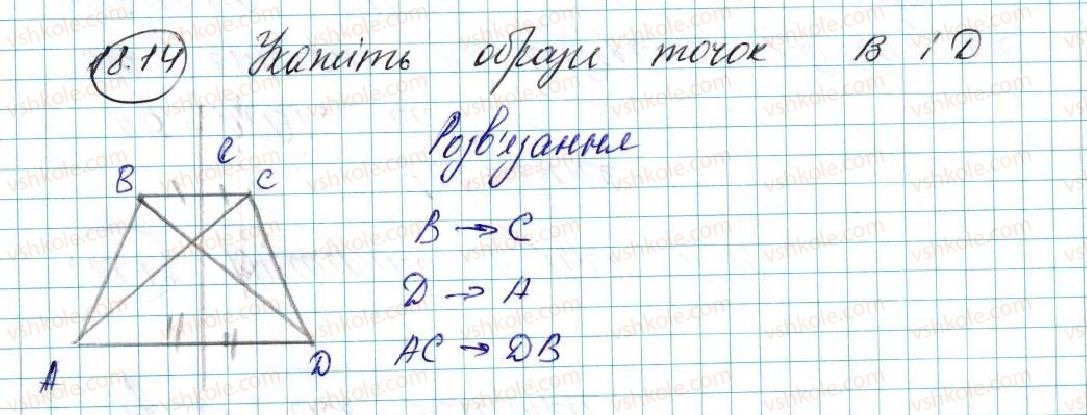 18.14 Укажіть образи точок B і D
Розв'язання
ℓ
B C
B → C
D → A
AC → DB
A D
vshkole.com